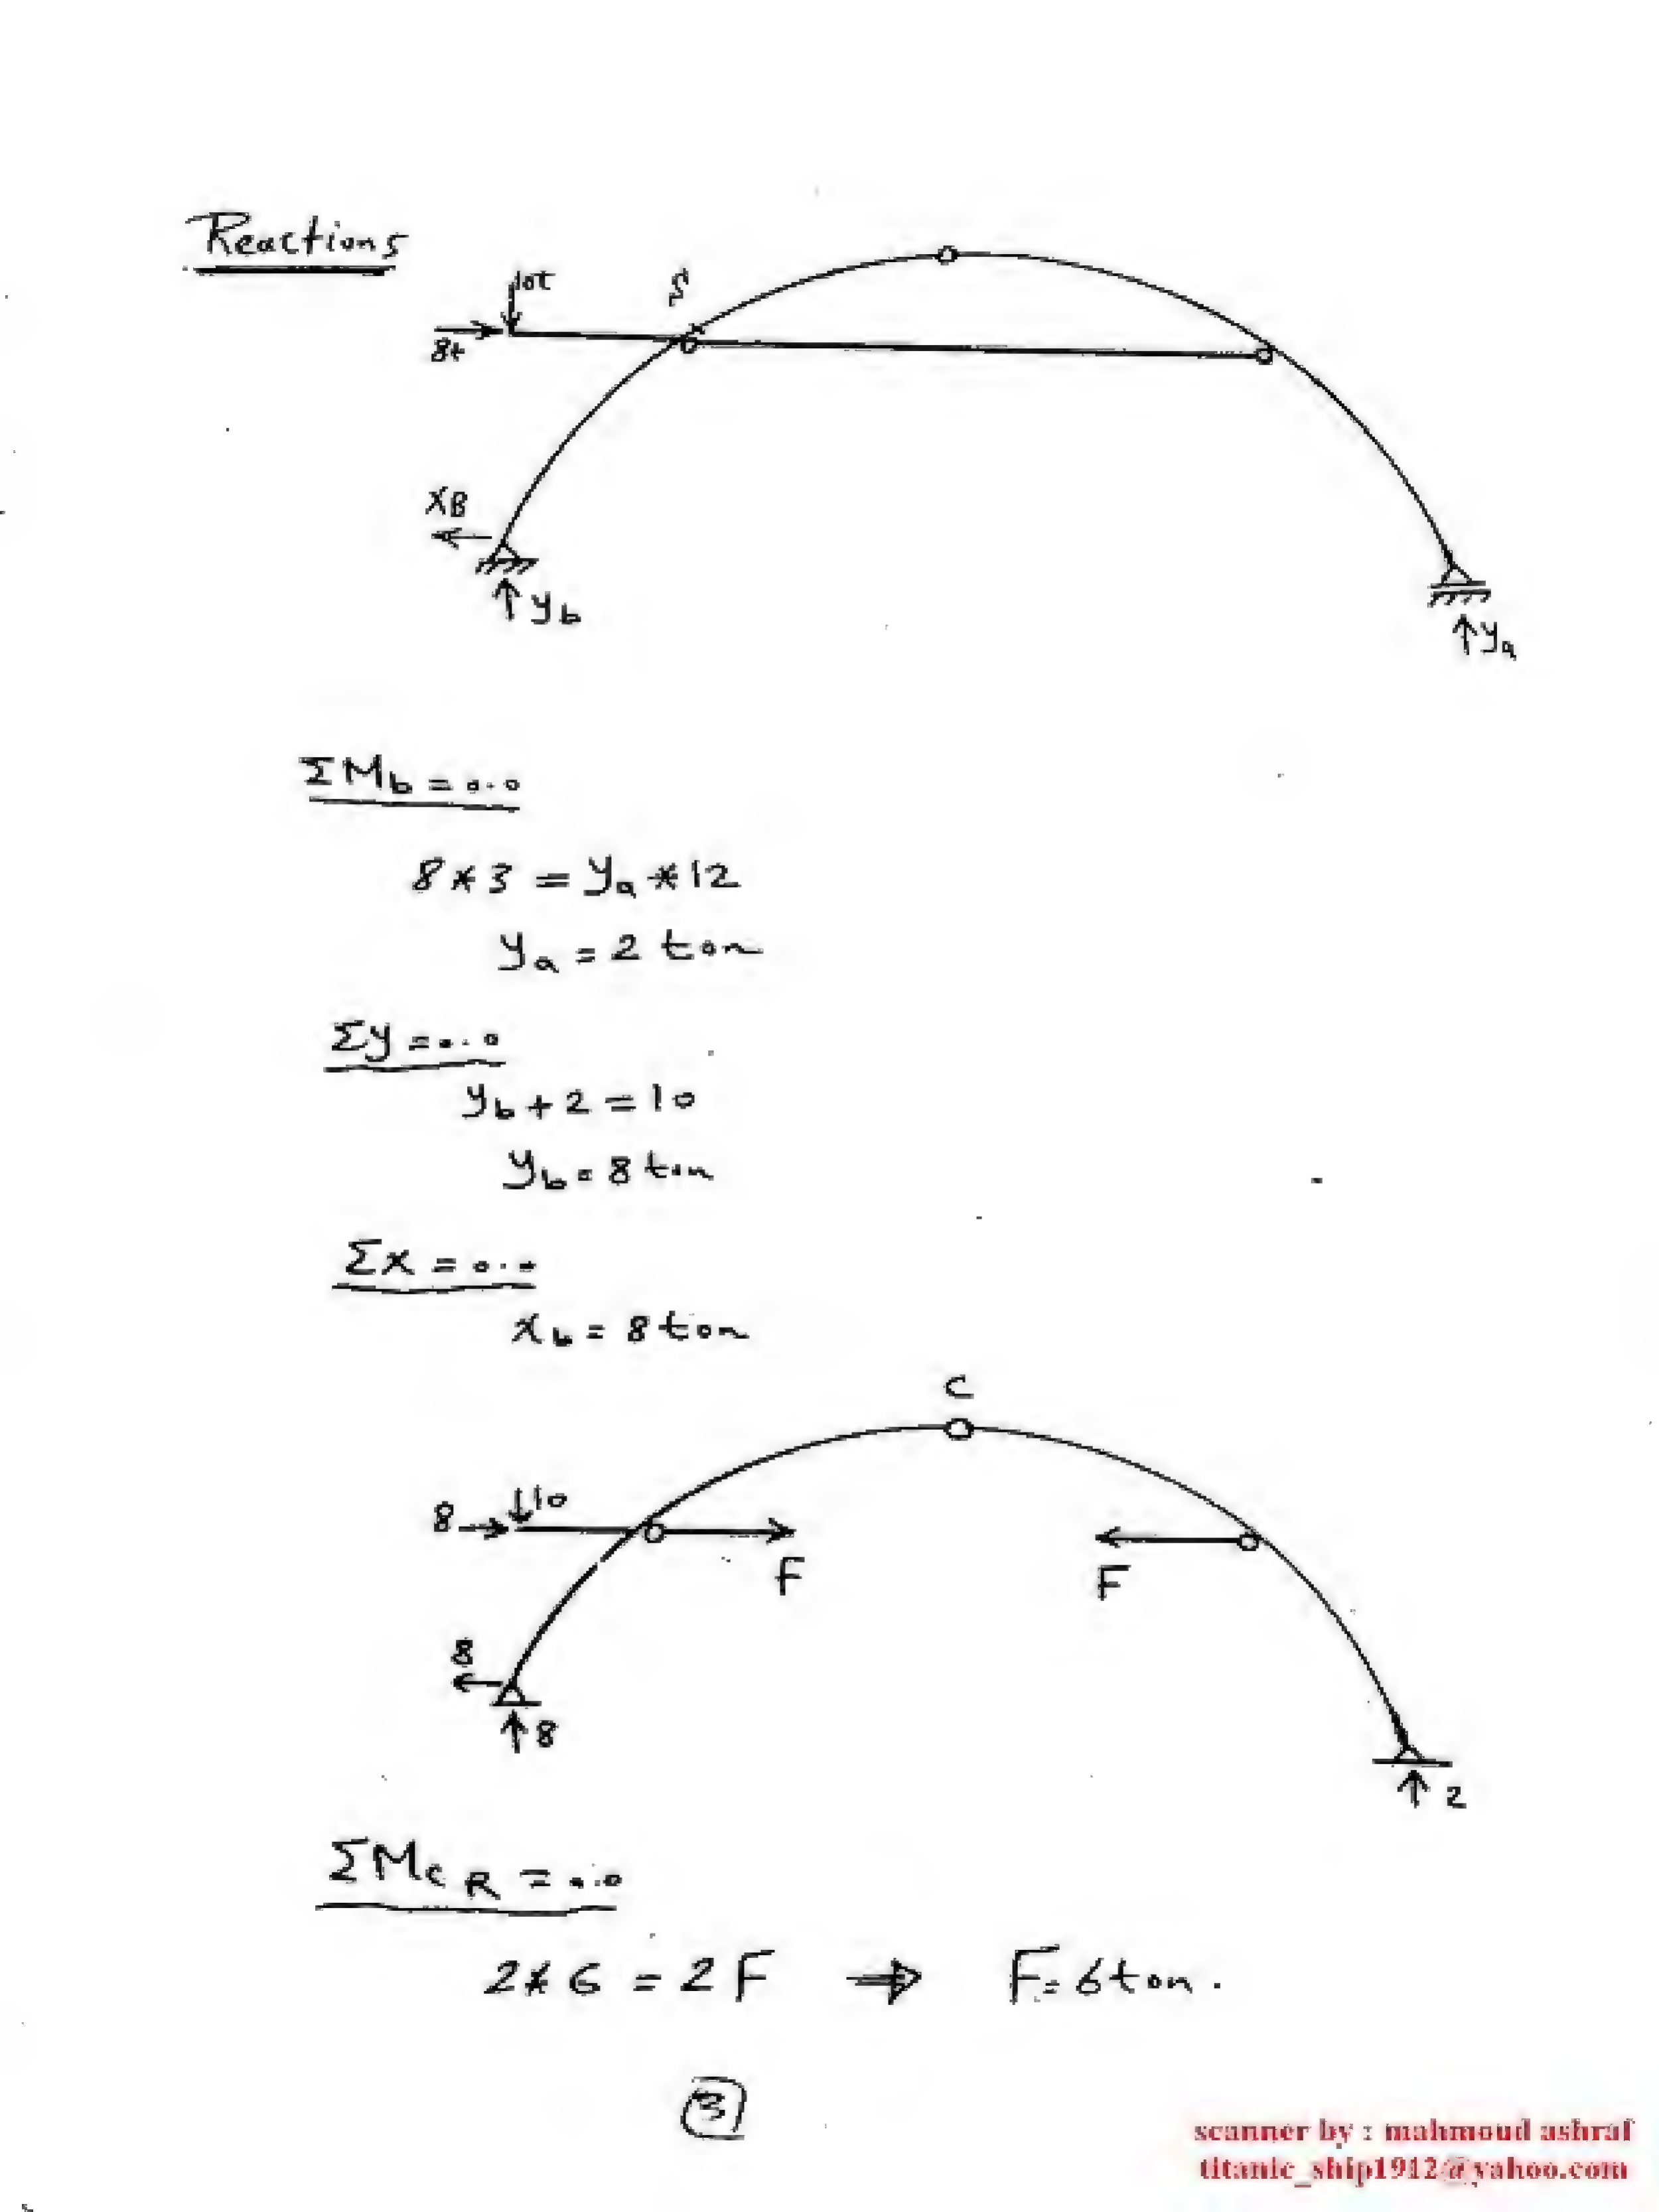 Reactions
10t
S
8t
XB
yb
ya
ΣMb = 0.0
8*3 = ya *12
ya = 2 ton
Σy = 0.0
yb + 2 = 10
yb = 8 ton
Σx = 0.0
xb = 8 ton
C
8 10
F F
8
8
2
ΣMc R = 0.0
2*6 = 2F ⇒ F = 6 ton.
3
scanner by : mahmoud ashraf
titanic_ship1912@yahoo.com